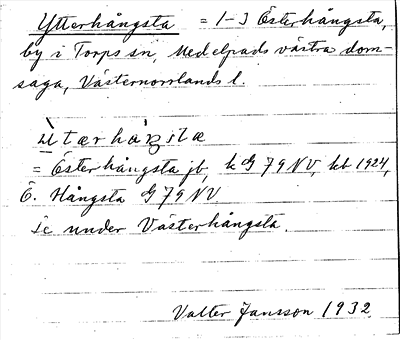 Ytterhångsta = 1-3 Österhångsta,
by i Torps sn, Medelpads västra dom-
saga, Västernorrlands l.
= Österhångsta jb, k G 79 NV, kb 1924,
Ö. Hångsta G 79 NV
Se under Västerhångsta.
Valter Jansson 1932